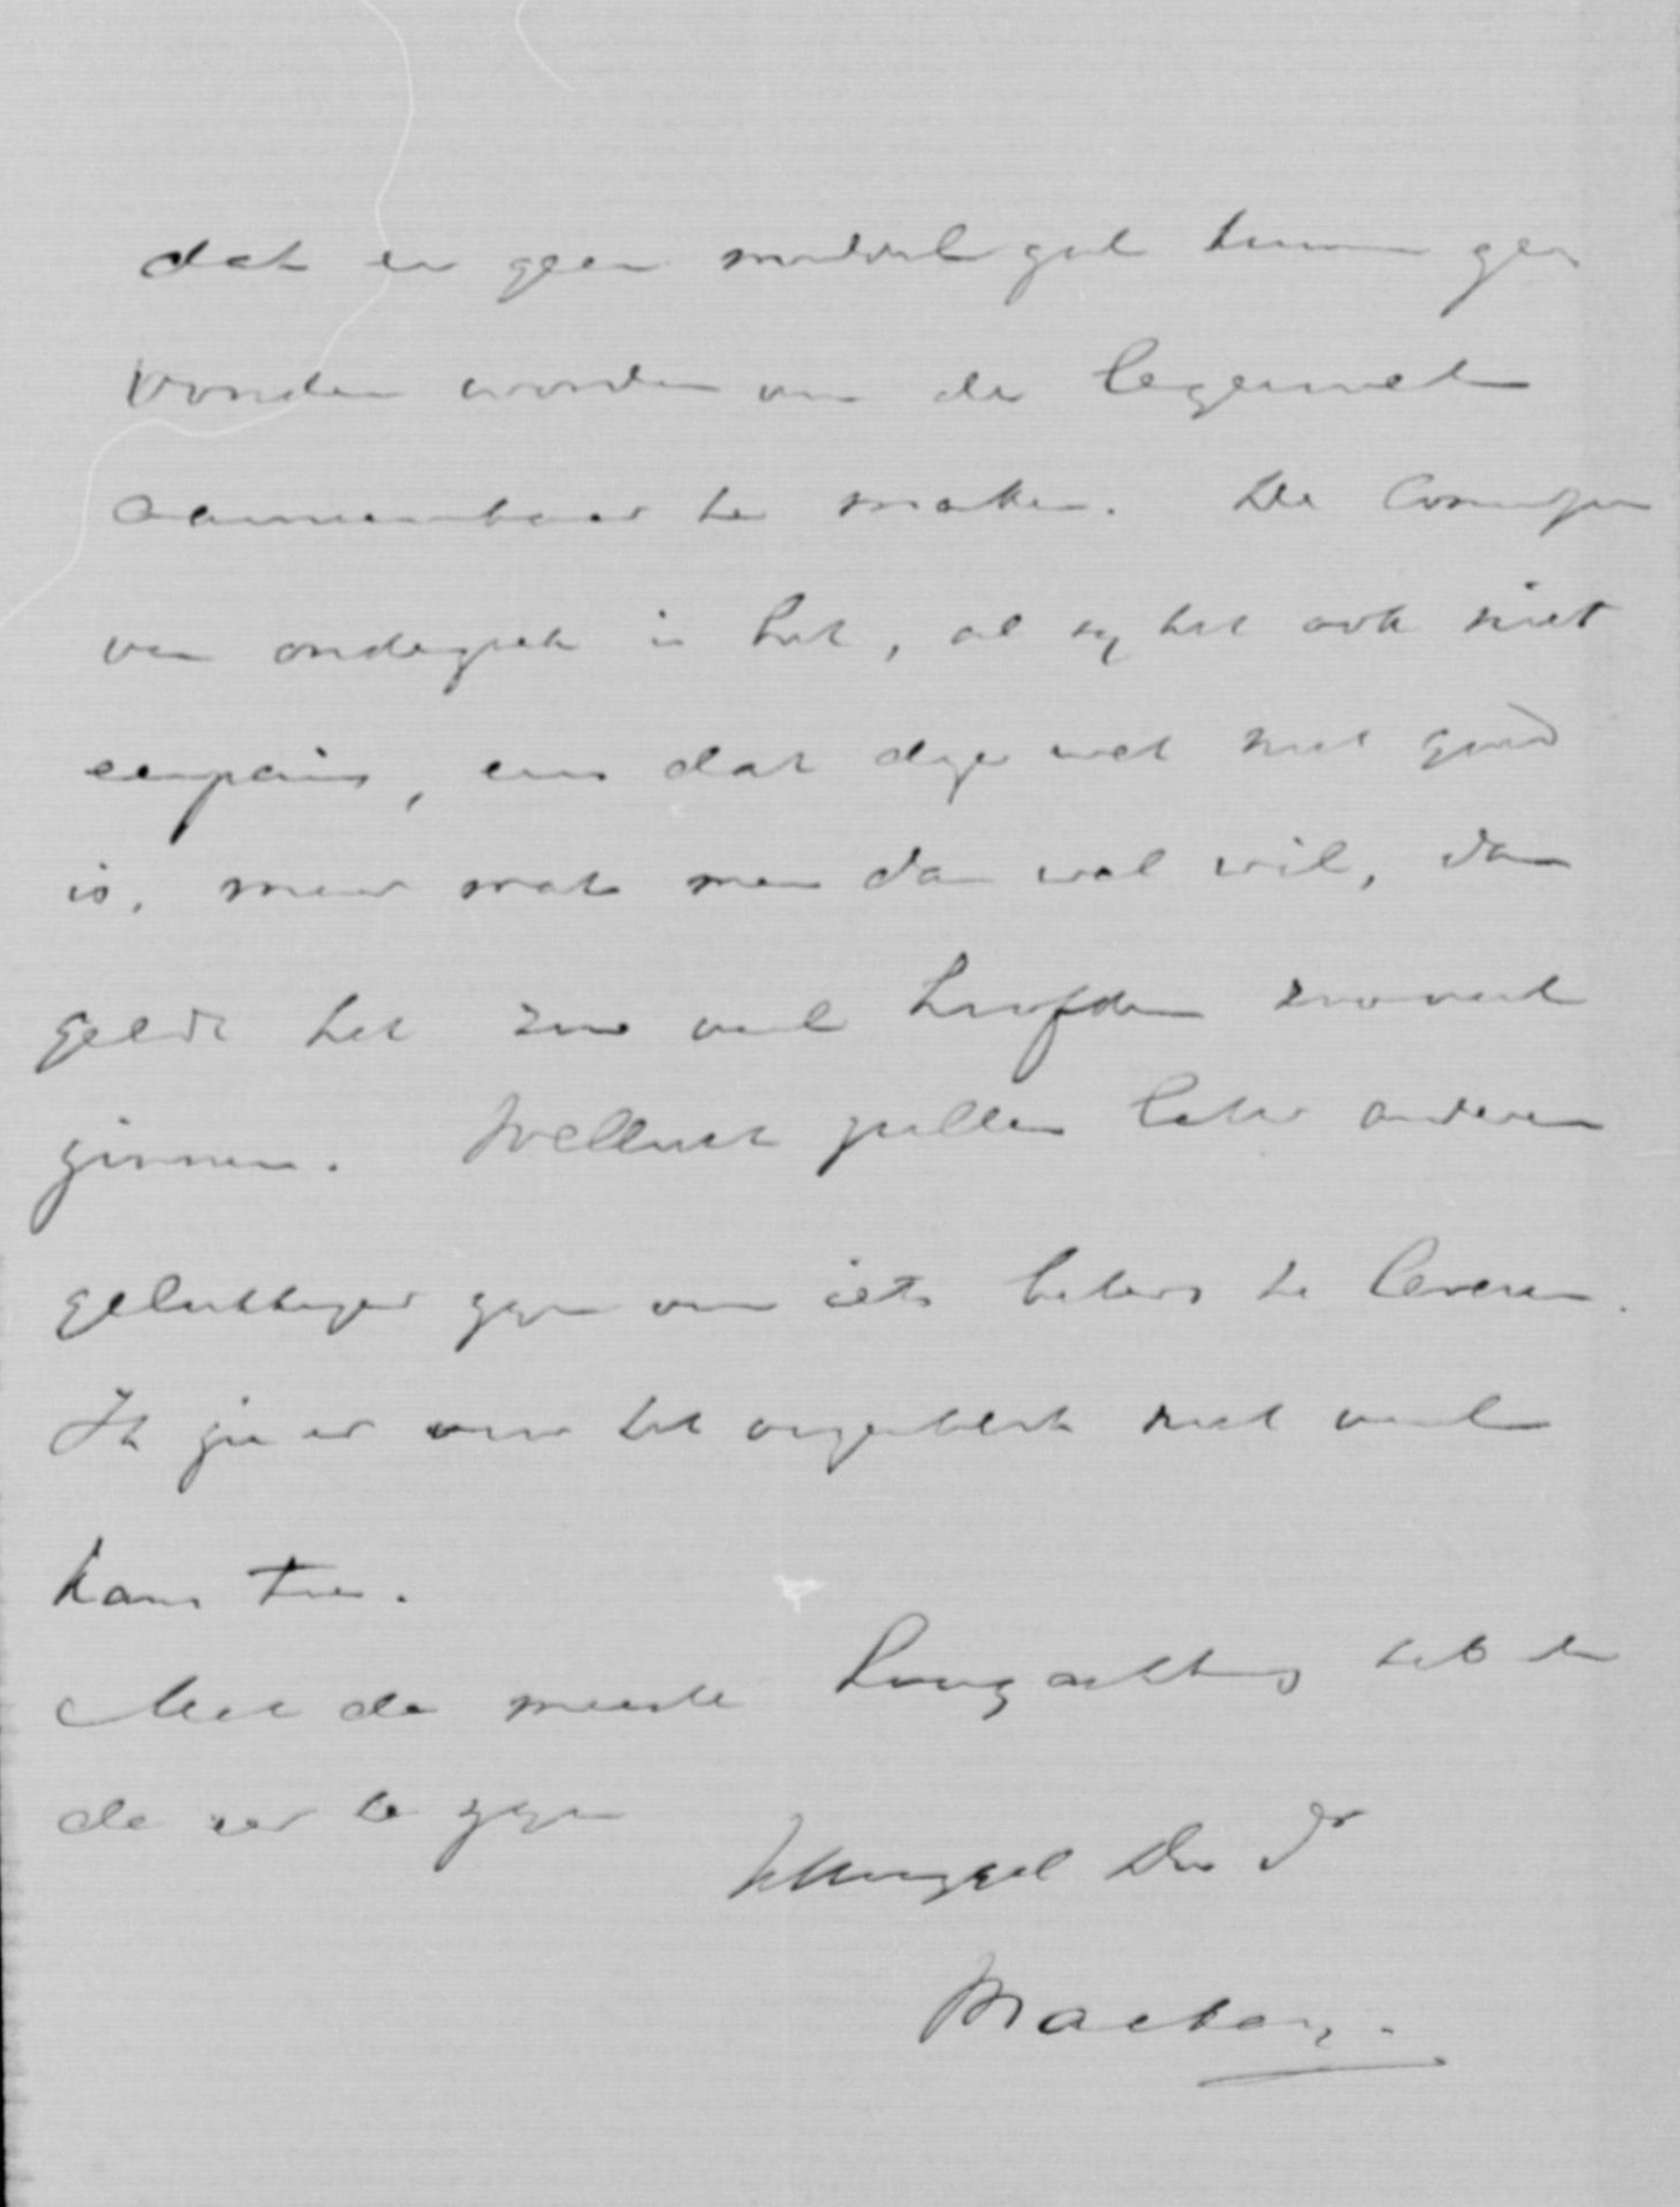 dat er geen middel zal kunnen ge
vonden worden om de legerwet
aannembaar te maken. De Commissie
van onderzoek is het, al zij het ook niet
eenparig, eens dat deze wet niet goed
is, maar wat men dan wel wil, dan
geldt het zoo veel hoofden zooveel
zinnen. Wellicht zullen later anderen
gelukkiger zijn om iets beters te leveren.
Ik zie er voor het oogenblik niet veel
kans toe.
Met de meeste hoogachting heb ik
de eer te zijn
UHoogEd Dw Dr
Mackay.